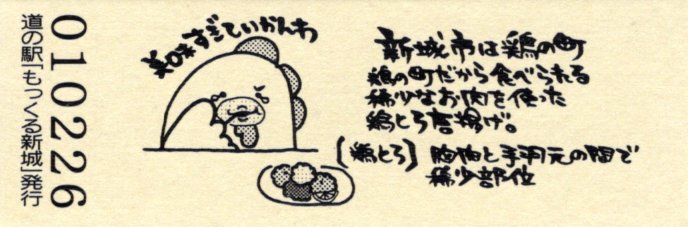 010226
道の駅「もっくる新城」発行
美味すぎていかんわ
新城市は鶏の町
鶏の町だから食べられる
稀少なお肉を使った
鶏とろ唐揚げ。
[鶏とろ] 胸肉と手羽元の間で
稀少部位